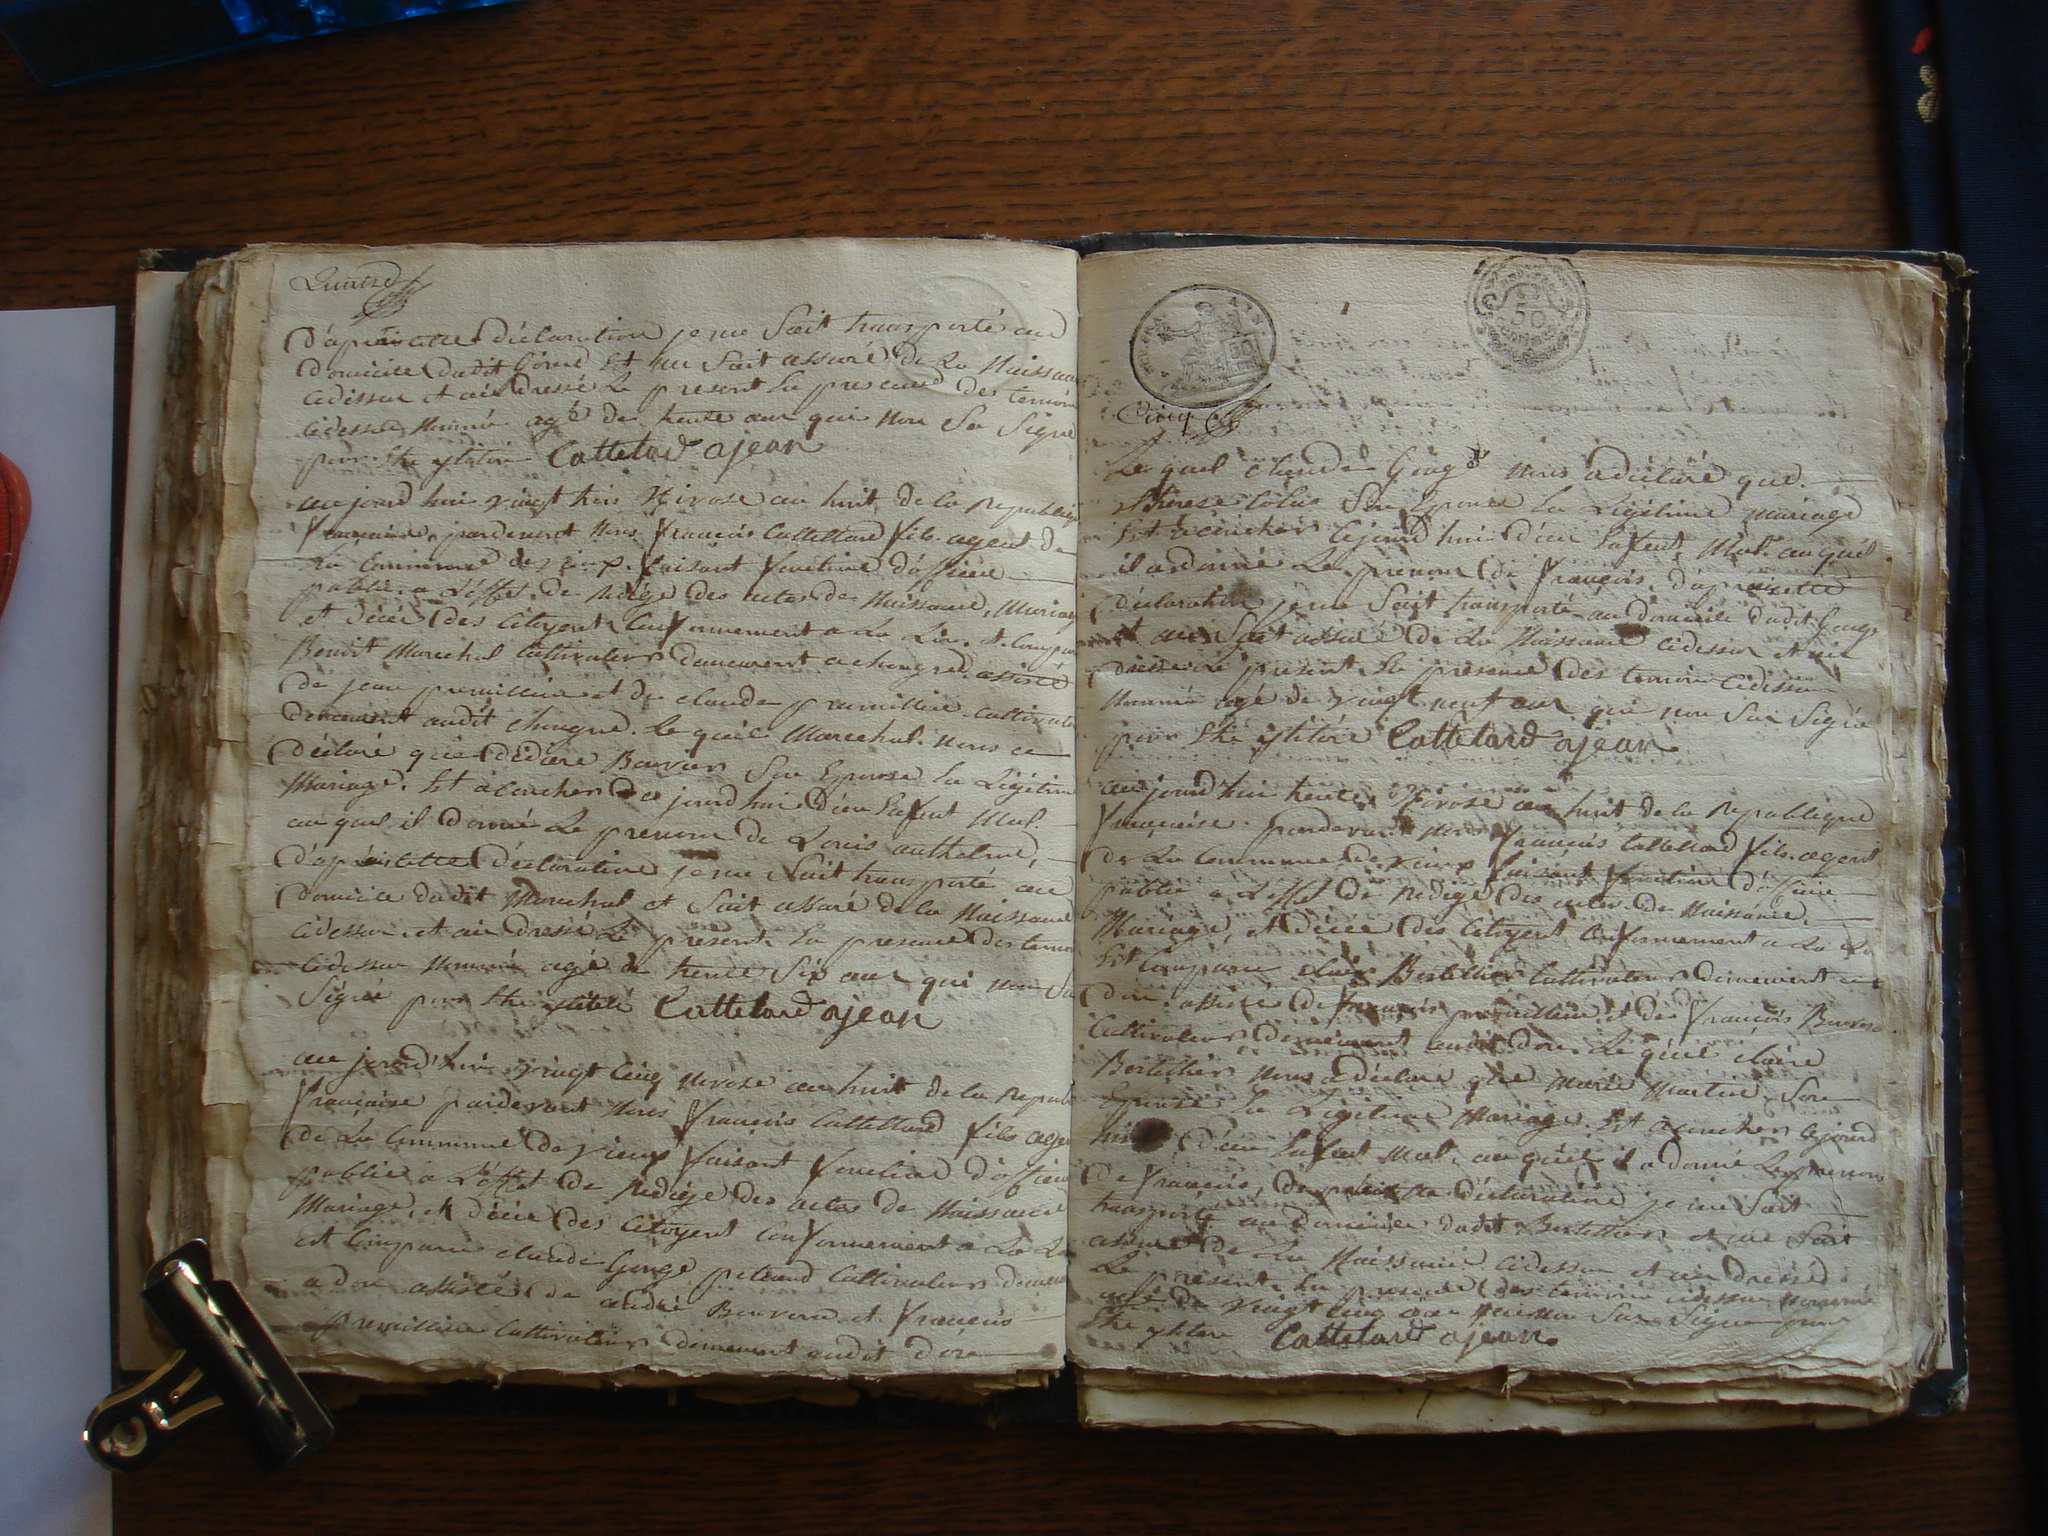 d'après cette déclaration je me Suit transporté au
domicile dudit et me Suit assuré de La Naissance
Cidessu et ai dressé Le present En presence des temoin
Cidessu Nommé agé de trente aur qui non Su Signé
Cattelard ajean
au jourd hui vingt trois Nivose au huit de la Republique
francaise pardevant Nous francois Cattelard fils agent de
La Commune de vieux faisant fonction d'officier
public a L'effet de redige des actes de Naissance, Mariage
et décés des Citoyent Conformement a La Loi. et Comparu
Benoit Marechal Cultivateur demeurent a chongne assisté
de jean premillieu et de claude premillieu cultivateur
demeurent audit chongne. Le quel Marechal nous a
déclaré que Bouvier Son Epouse En Légitime
Mariage. Est acoucher de jourd hui d'un Enfent Mal.
au quel il donné Le prenom de Louis anthelme,
d'après cette déclaration je me Suit transporté au
domicile dudit Marechal et Suit assuré de la Naissance
Cidessu et ai dressé Le present En presence des temoin
Cidessu Nommé agé de trente Six aur qui non Su
Signé Cattelard ajean
au jourd'hui vingt Cinq nivose au huit de la Republique
francaise pardevant Nous francois Cattellard fils agent
de La Commune De vieux faisant fonction d'officier
public a L'effet de redige des actes de Naissance
Mariage, et décée des Citoyent Conformement a La Loi
et Comparu claude Gonge petand Cultivateur demeurent
a don assisté de andré et francois
premillieu Cultivateur demeurent audit don
50
Cinq
Le quel claude Gong nous a déclaré que
Therese Son Epouse En Légitime Mariage
Est acoucher Cejourd hui d'un Enfent Mal. au quel
il a donné Le prenom de francois d'après cette
déclaration je me Suit transporté au domicile dudit Gonge
et me Suit assuré de La Naissance Cidessu et ai
dressé Le present En presence des temoin Cidessu
Nommé agé de vingt neuf aur qui non Su Signé
Cattelard ajean
au jourd hui trente Nivose au huit de la Republique
francaise. pardevant nous francois Cattellard fils agent
de La Commune de vieux faisant fonction d'officier
public a L'effet de redige des actes de Naissance.
Mariage, et décée des Citoyent Conformement a La Loi
Est Comparu Bertellier Cultivateur demeurent a
don assisté de francois premillieu et de francois
Cultivateur demeurent audit don Le quel
Bertellier nous a déclaré que marie Martin Son
Epouse En Légitime Mariage. Est acoucher Cejourd
hui d'un Enfent Mal. au quel il a donné Le prenom
de francois, déclaration je me Suit
transporté au domicile dudit Bertellier et me Suit
assuré de La Naissance Cidessu et ai dressé
Le present En presence des temoin cidessu nommé
agé de vingt Cinq Su Signé
Cattelard ajean